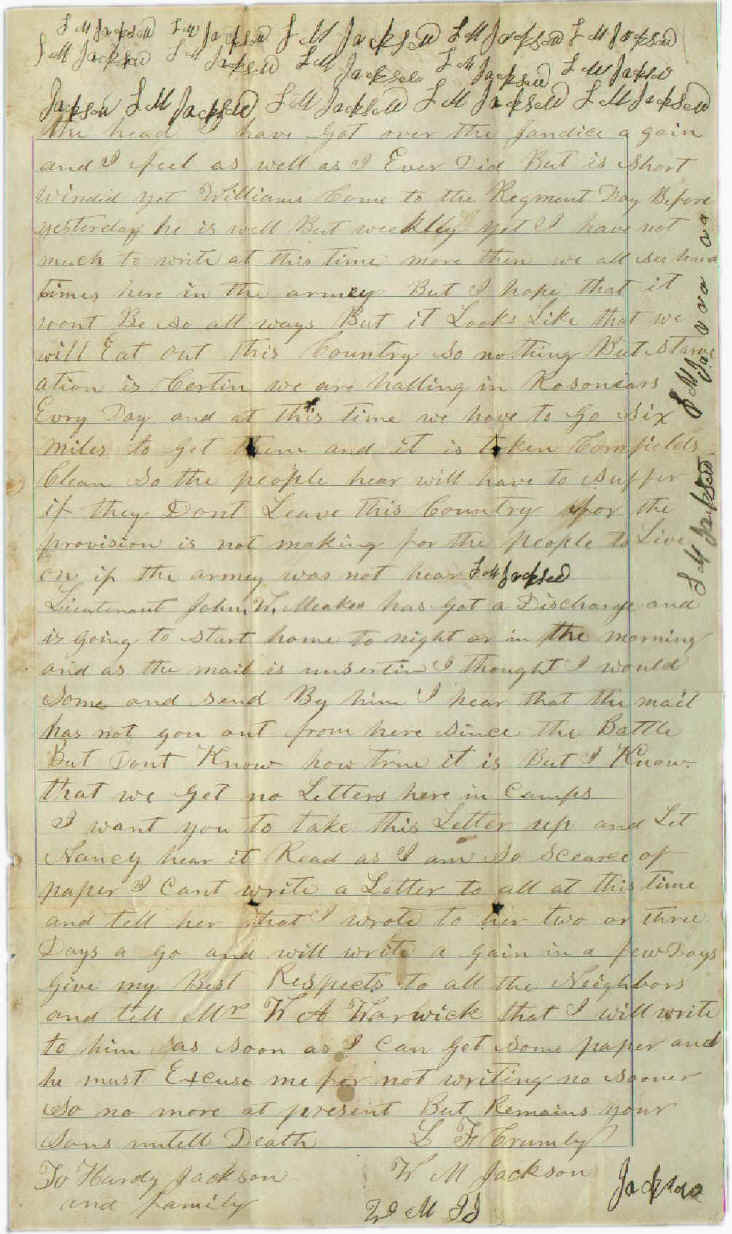 S M Jackson S M Jackson S M Jackson S M Jackson S M Jackson
S M Jackson S M Jackson S M Jackson S M Jackson S M Jackson
Jackson S M Jackson S M Jackson S M Jackson S M Jackson
the head have got over the Jandice a gain
and I feel as well as I Ever Did But is Short
windid yet Williams Come to the Regment Day Before
yesterday he is well But weeklly yet I have not
much to write at this time more then we all see hard
times here in the armey But I hope that it
wont Be so all ways But it Looks Like that we
will Eat out this Country So nothing But starv
ation is Certin we are halling in Rosonears
Evry Day and at this time we have to Go Six
miles to get them and it is taken Cornfields
Clean So the people hear will have to suffer
if they Dont Leave this Country for the
provision is not making for the people to Live
on if the armey was not hear S M Jackson
Lieutenant John W. Meaks has got a Discharge and
is going to start home to night or in the morning
and as the mail is unsertin I thought I would
Some and send By him I hear that the mail
has not gon out from here since the Battle
But Dont Know how true it is But I Know
that we get no Letters here in Camps
I want you to take this Letter up and Let
Nancy hear it Read as I am so Scearce of
paper I Cant write a Letter to all at this time
and tell her that I wrote to her two or three
Days a go and will write a gain in a few Days
Give my Best Respects to all the Neighbors
and tell Mr W A Warwick that I will write
to him as soon as I can Get some paper and
he must Excuse me for not writing no sooner
So no more at present But Remains your
Sons untell Death L F Crumby
To Hardy Jackson W M Jackson Jackson
and family W M JJ
S M Jackson
S M Jackson